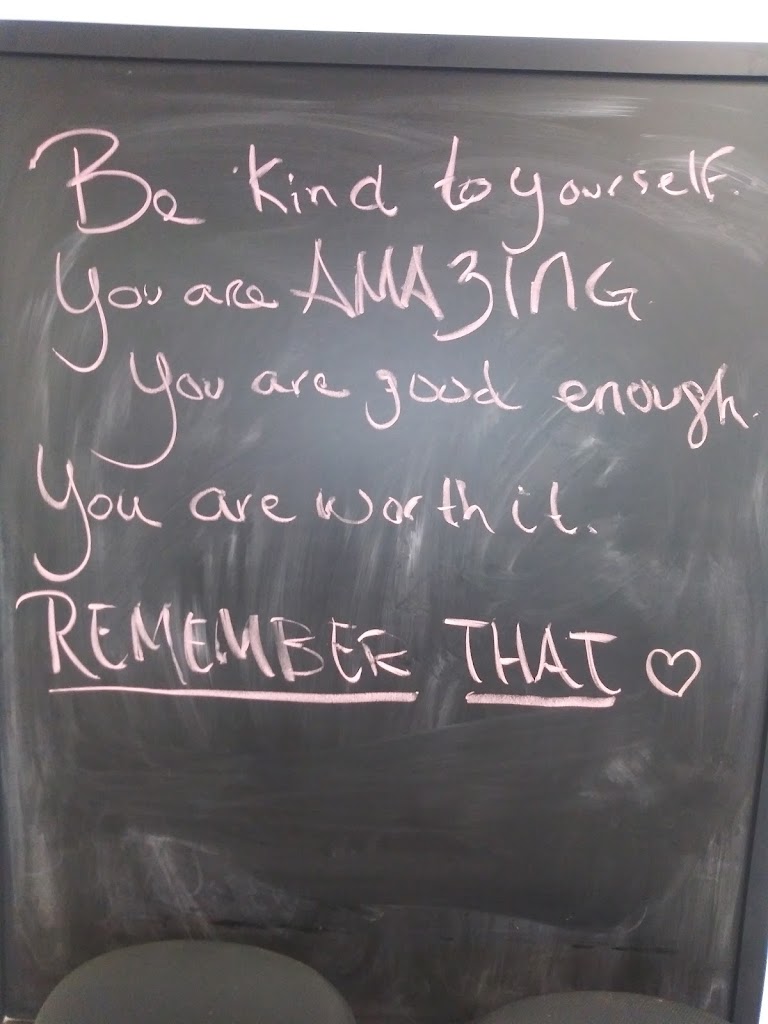 Be kind to yourself.
You are AMAZING.
You are good enough.
You are worth it.
REMEMBER THAT ♡